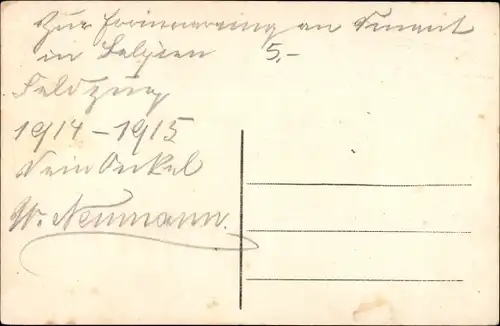 Zur Erinnerung an Dinant
in Belgien 5,-
Feldzug
1914-1915
Dein Onkel
W. Neumann.